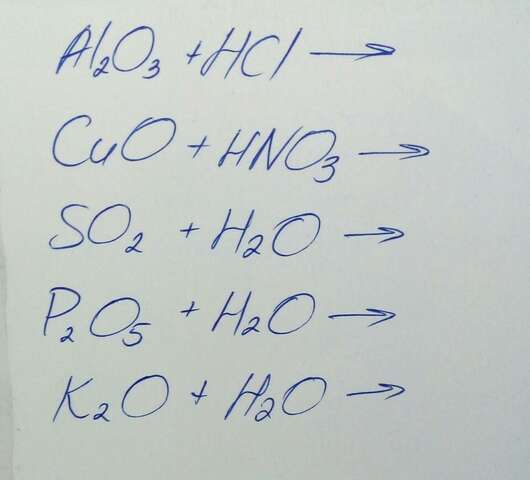 Al₂O₃ + HCl ⟶
CuO + HNO₃ ⟶
SO₂ + H₂O ⟶
P₂O₅ + H₂O ⟶
K₂O + H₂O ⟶